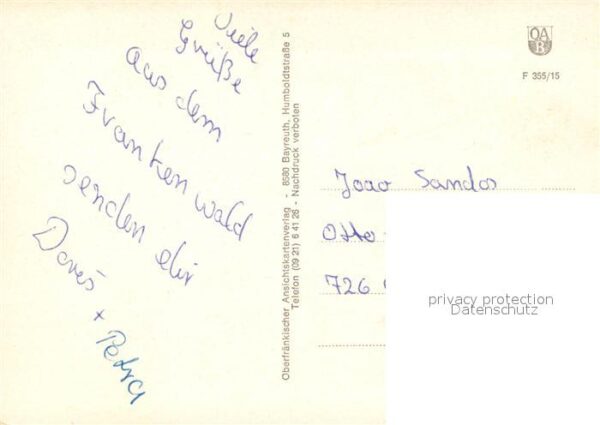 Viele
Grüße
aus dem
Frankenwald
senden dir
Dores + Petra
Oberfränkischer Ansichtskartenverlag - 8580 Bayreuth, Humboldtstraße 5
Telefon (09 21) 6 41 26 - Nachdruck verboten
OA
B
F 355/15
Joao Sandos
Otto-
726
privacy protection
Datenschutz